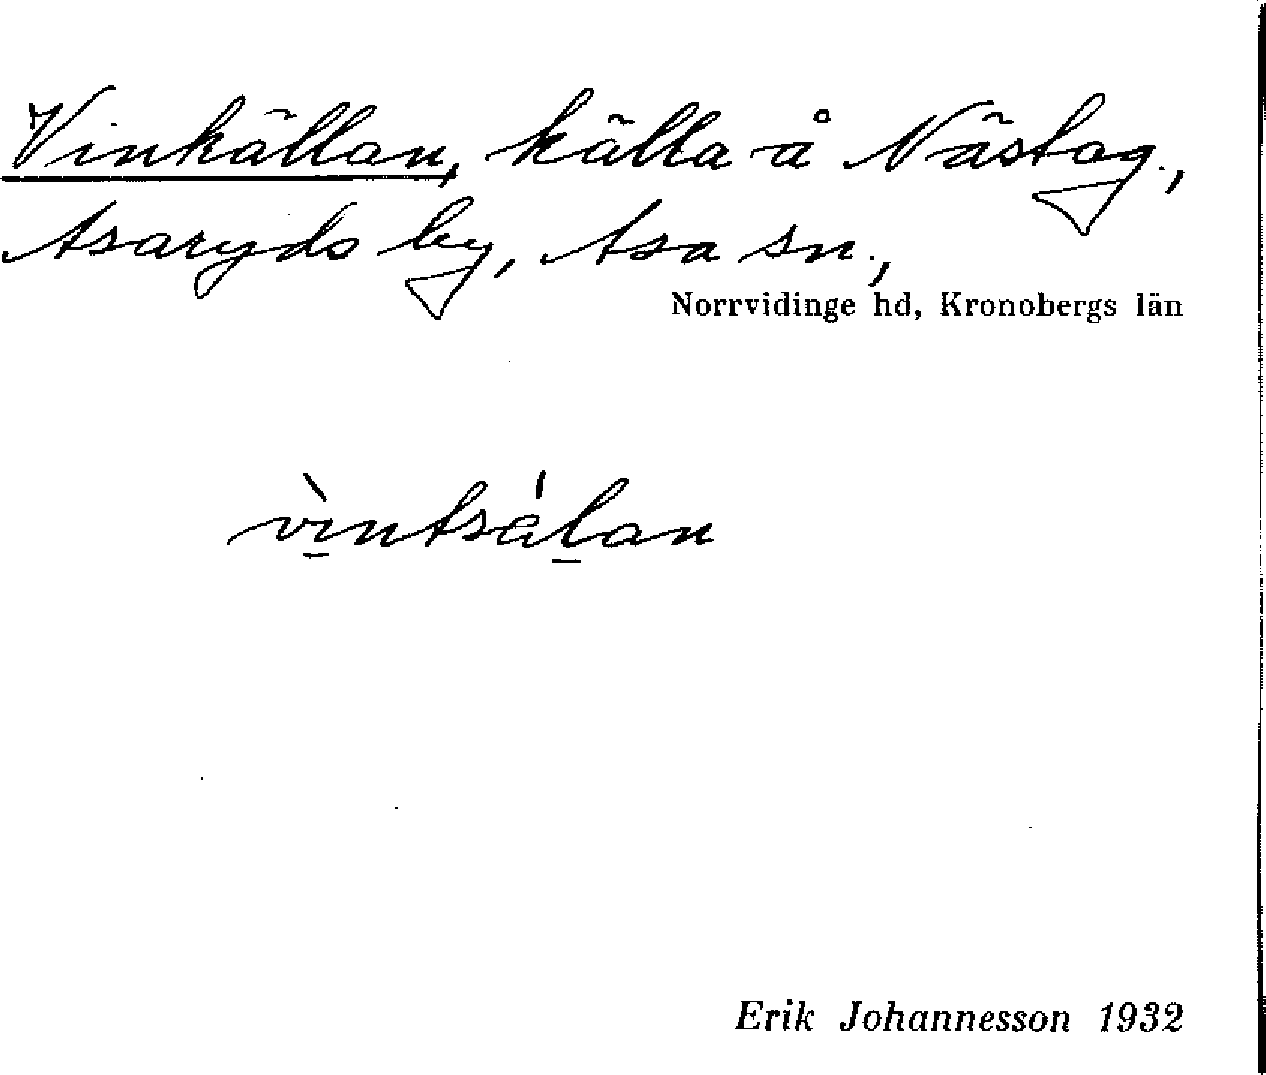 Vinkällan, källa å Nästag.,
Asaryds by, Asa sn.,
Norrvidinge hd, Kronobergs län
vìntsälan
Erik Johannesson 1932